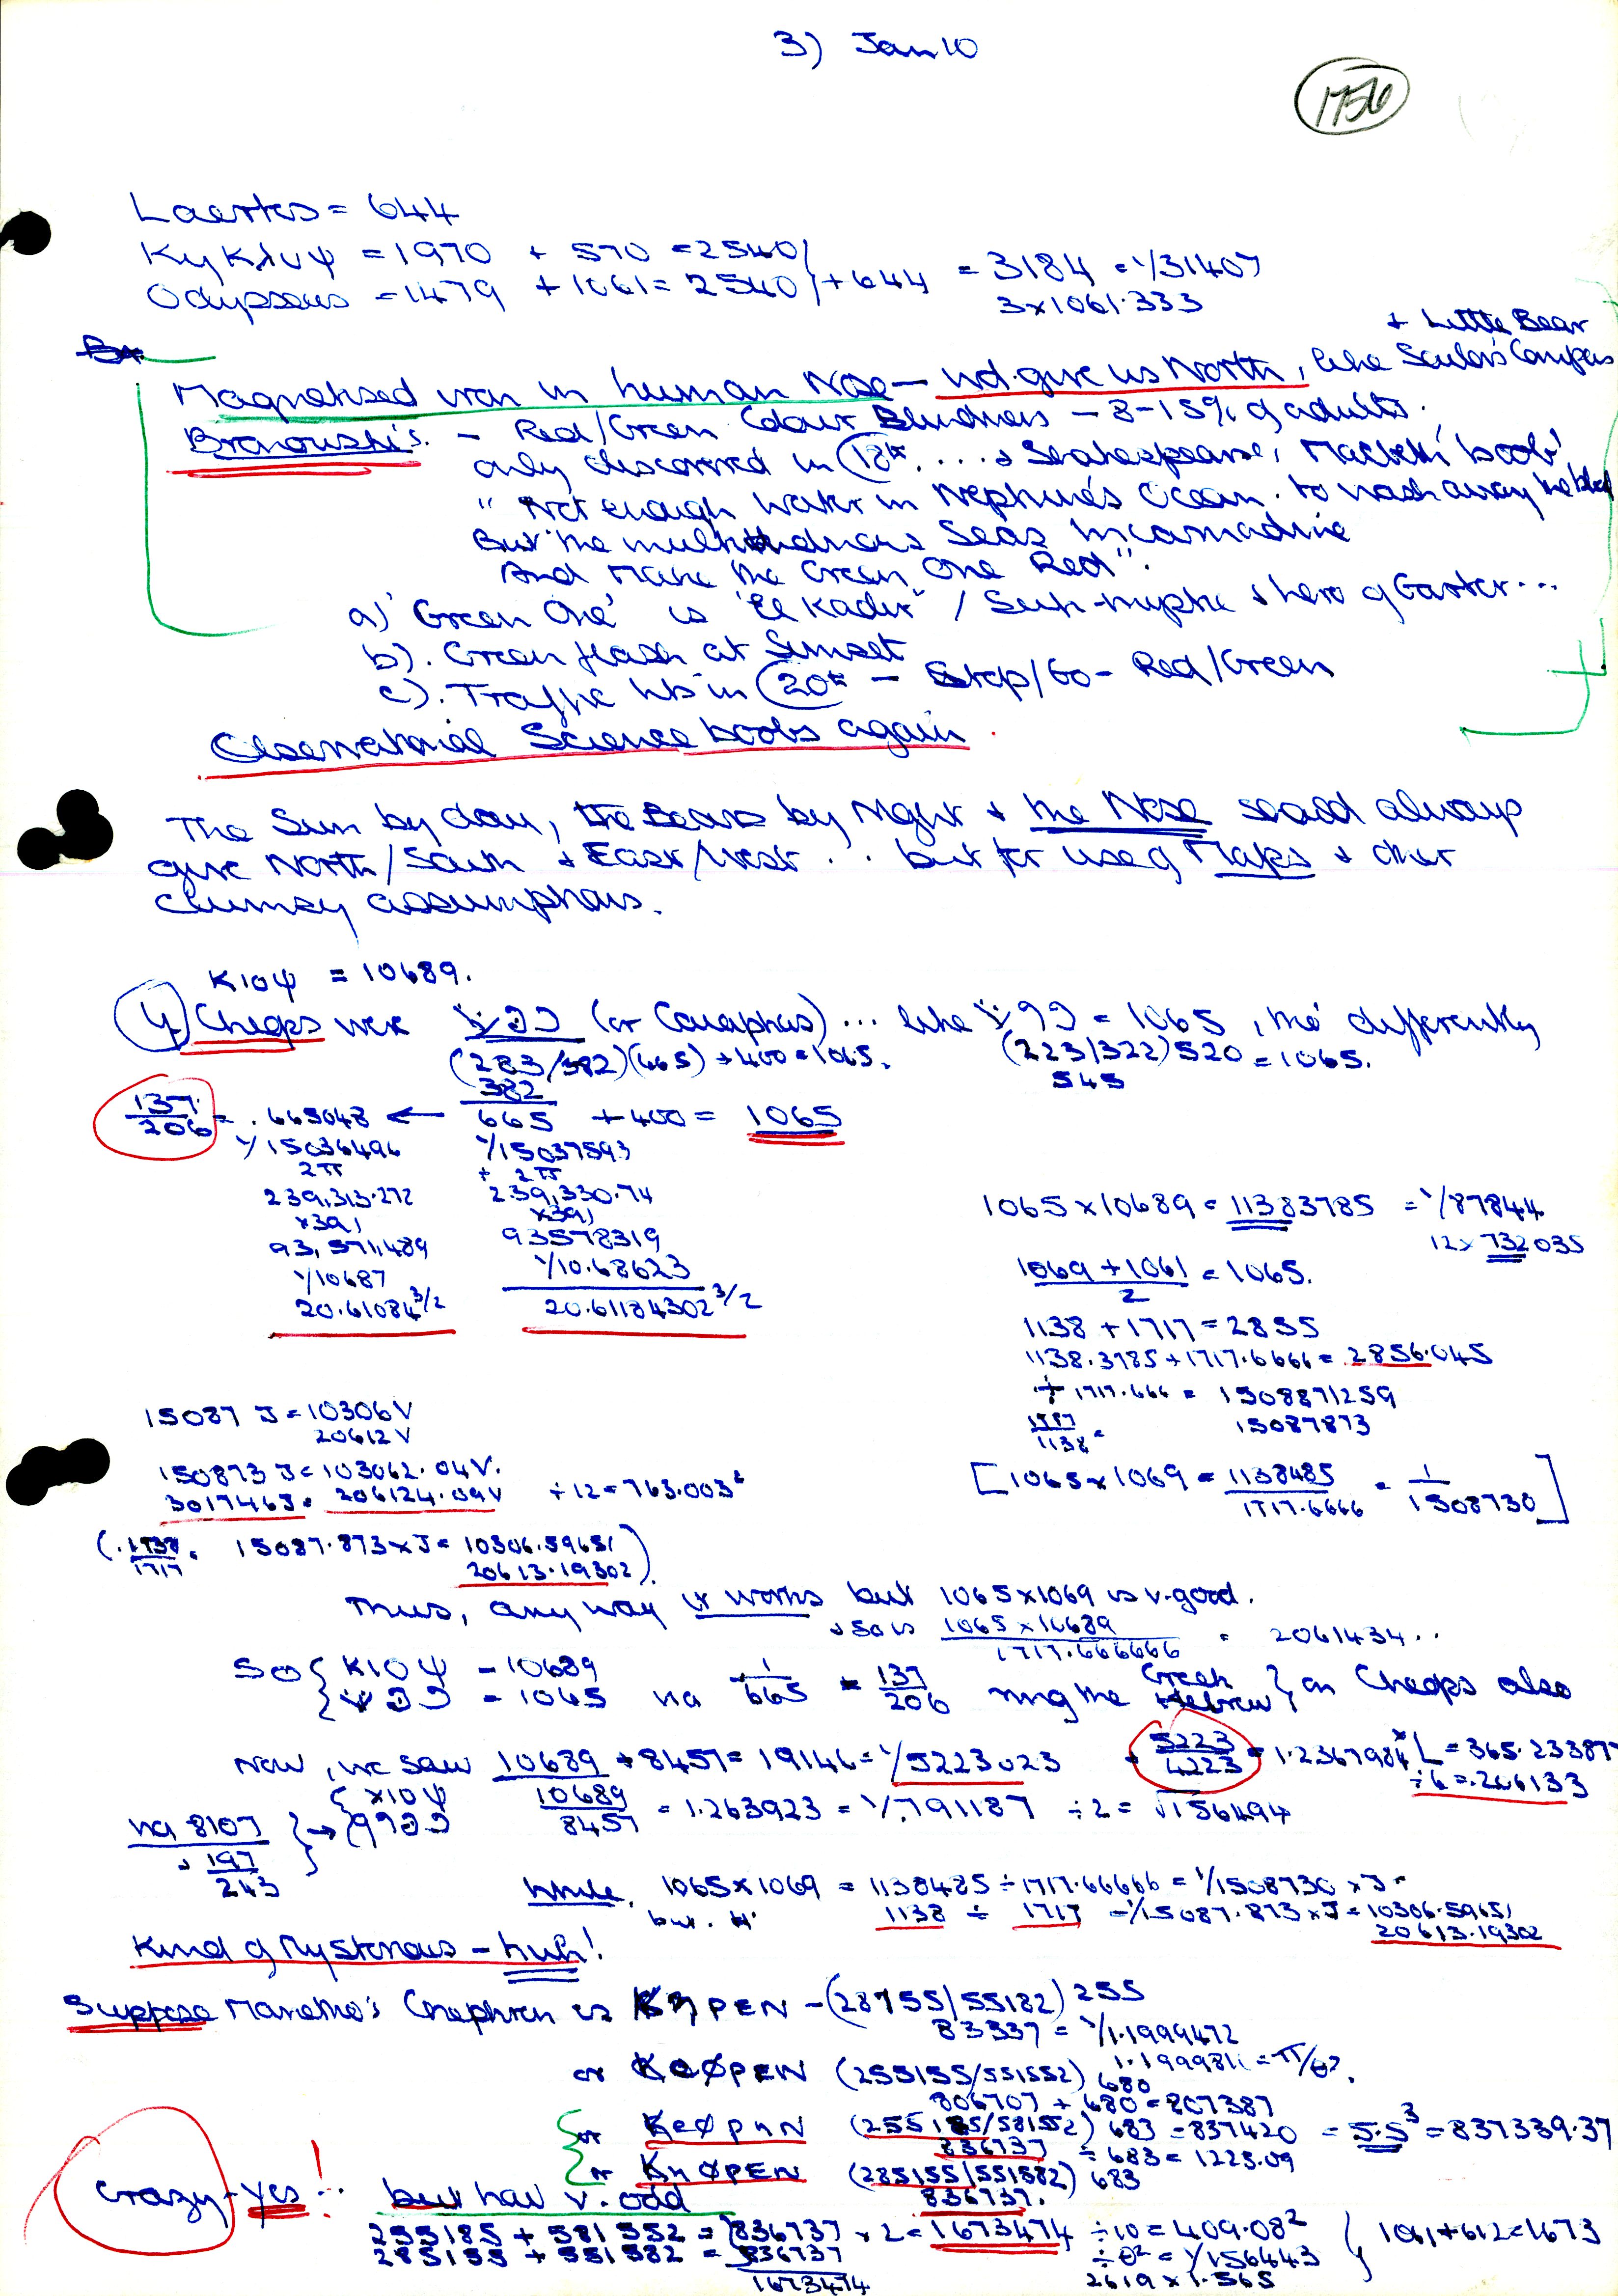 3) Jan 10
1756
Laertes = 644
Κυκλυψ = 1970 + 570 = 2540
Odysseus = 1479 + 1061 = 2540 } + 644 = 3184 = 1/31407
3 x 1061.333
+ Little Bear
Magnetised iron in human Nose - wd. give us North, like Sailor's Compass
Bronowski's. - Red/Green Colour Blindness - 8-15% of adults.
only discovered in 18th .... & Shakespeare, Macbeth 'boob'
"Not enough Water in Neptune's Ocean. to wash away the blood
But the multitudinous Seas Incarnadine
And Make the Green One Red".
a) 'Green One' is 'El Kadir' / hero of Garter ...
b). Green flash at Sunset
c). Traffic lts in 20th - Stop/Go - Red/Green
Observational Science boobs again.
The Sun by day, the Bears by Night & the Nose should always
give North/South & East/West ... but for use of Maps & other
clumsy assumptions.
Κ10ψ = 10689.
4) Cheops were (or Caiaphas) ... like = 1065, tho' differently
(283/382)(665) + 400 = 1065.
(223/322) 520 = 1065.
545
137/206 = .665048 ← 382
665 + 400 = 1065
1/15036496
1/15037593
2π
÷ 2π
239,313.272
239,330.74
x 391
x 391
93,571,489
93578319
1/10687
1/10.68623
20.61084 3/2
20.61184302 3/2
1065 x 10689 = 11383785 = 1/87844
12 x 732035
1069 + 1061 / 2 = 1065.
1138 + 1717 = 2855
1138.3785 + 1717.6666 = 2856.045
÷ 1717.666 = 1508871259
1717/1138 = 15087873
15087 J = 10306 V
20612 V
150873 J = 103062.04 V.
301746 J = 206124.09 V ÷ 12 = 763.003
[1065 x 1069 = 1138485 / 1717.6666 = 1 / 1508730]
(.1138/1717 = 15087.873 x J = 10306.59651
20613.19302).
Thus, any way it works but 1065 x 1069 is v. good.
& so is 1065 x 10689 / 1717.666666 = 2061434..
So { Κ10ψ = 10689
= 1065 via 1/665 = 137/206 ring the Greek Hebrew } on Cheops also
Now, we saw 10689 + 8457 = 19146 = 1/5223023 + 5223/4223 = 1.2367984 x L = 365.233877
÷ 6 = .206133
10689/8457 = 1.263923 = 1/.791187 ÷ 2 = √156494
via 8107
+ 197/243
While, 1065 x 1069 = 1138485 ÷ 1717.66666 = 1/1508730 x J =
but. 1138 ÷ 1717 = 1/15087.873 x J = 10306.59651
20613.19302
Kind of Mysterious - huh!
Suppose Manetho's Chephren is ΚηρεΝ - (28755/55182) 255
83337 = 1/1.1999472
1.1999811 = π/θ?.
or ΚεφρεΝ (255155/551552) 680
806707 + 680 = 807387
or ΚεφρηΝ (255185/581552) 683 = 837420 = 5.5³ = 837339.37
836737 ÷ 683 = 1225.09
or ΚηφρεΝ (285155/551582) 683
836737.
Crazy - yes! .. but how v. odd
255185 + 581552 = 836737 x 2 = 1673474 ÷ 10 = 409.08²
285155 + 551582 = 836737
1673474
÷ θ² = 1/156443
2619 x 1.565
} 1061 + 612 = 1673